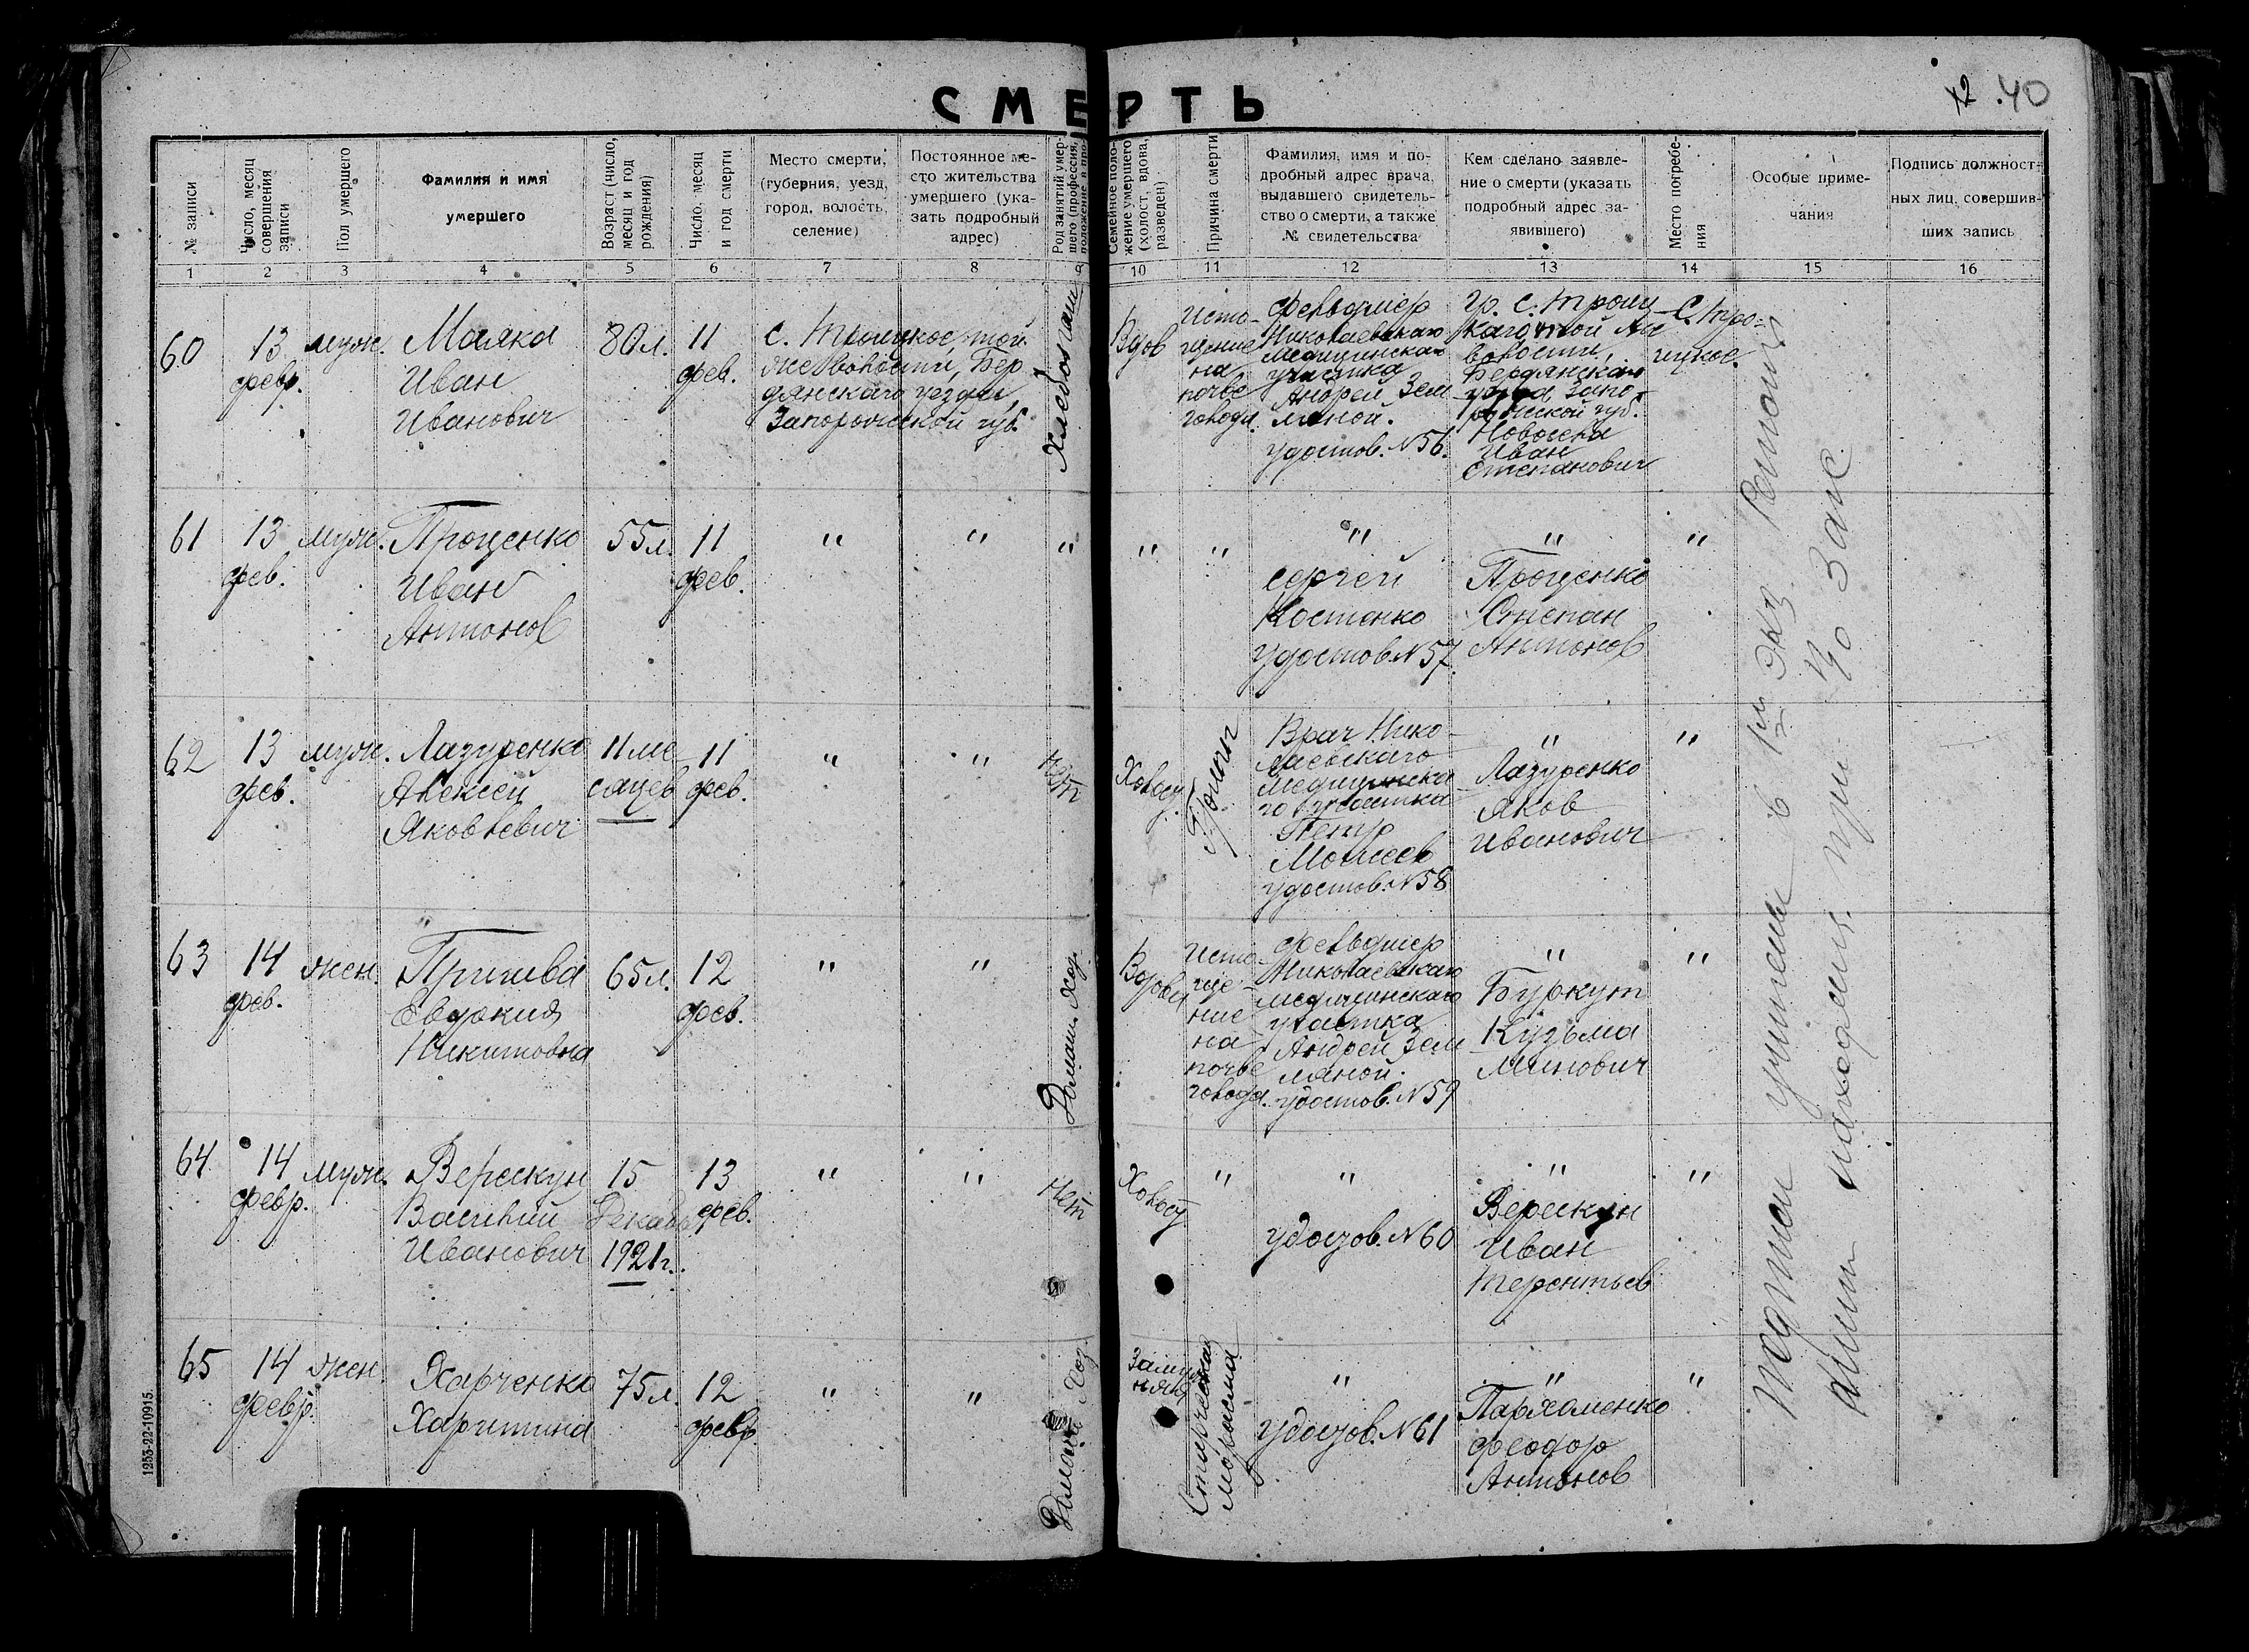 СМЕРТЬ
12 . 40
№ записи
Число, месяц совершения записи
Пол умершего
Фамилия и имя
умершего
Возраст (число, месяц и год рождения)
Число, месяц и год смерти
Место смерти,
(губерния, уезд,
город, волость,
селение)
Постоянное ме-
сто жительства
умершего (ука-
зать подробный
адрес)
Род занятий умер-
шего (профессия,
положение в про-
Семейное поло-
жение умершего
(холост, вдова,
разведен)
Причина смерти
Фамилия, имя и по-
дробный адрес врача,
выдавшего свидетель-
ство о смерти, а также
№ свидетельства
Кем сделано заявле-
ние о смерти (указать
подробный адрес за-
явившего)
Место погребе-
ния
Особые приме-
чания
Подпись должност-
ных лиц, совершив-
ших запись
1 2 3 4 5 6 7 8 9 10 11 12 13 14 15 16
60
13
февр.
муж.
Маяка
Иван
Иванович
80л.
11
фев.
с. Троицкое, той
же волости, Бер
дянского уезда,
Запорожской губ.
Хлебопаш
Вдов
Исто-
щение
на
почве
голода.
Фельдшер
Николаевскаго
медицинскаго
участка
Андрей Зем
ляной.
удостов. №56.
гр. с. Троиц-
волости,
Бердянскаго
уезда Запо-
рожской губ.
Иван
Степанович
С. Тро-
ицкое.
61
13
фев.
муж.
Проценко
Иван
Антонов
55л.
11
фев.
" " " " " " " "
Сергей
Костенко
Удостов. №57.
Проценко
Степан
Антонов
62
13
фев.
муж.
Лазуренко
Алексей
Яковлевич
11 ме
сяцев
11
фев.
" "
Нет
Холост
Врач Нико-
лаевского
медицинска-
го участка
Петр
Моисеев
удостов. №58
"
Лазуренко
Яков
Иванович
"
63
14
фев.
жен.
Евдокия
Никитовна
65л.
12
фев.
" "
Домаш. хоз.
Вдова
Исто-
ще-
ние
на
почве
голода.
Фельдшер
Николаевскаго
медицинскаго
участка
Андрей Зем
ляной.
удостов. №59
"
Буркут
Кузьма
Минович
"
64
14
февр.
муж.
Верескун
Василий
Иванович
15
Декабр
1921г.
13
фев.
" "
Нет
Холост
" "
удостов. №60
"
Верескун
Иван
Терентьев
"
65
14
февр.
жен.
Харченко
Харитина
75л.
12
февр.
" "
Домаш. хоз.
Замуж
няя
Старческая
"
удостов. №61
"
Пархоменко
Феодор
Антонов
"
1253-22-10915.